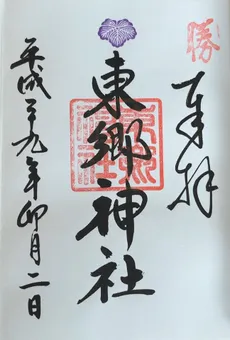 勝
奉拝
東郷神社
平成二十九年卯月二日